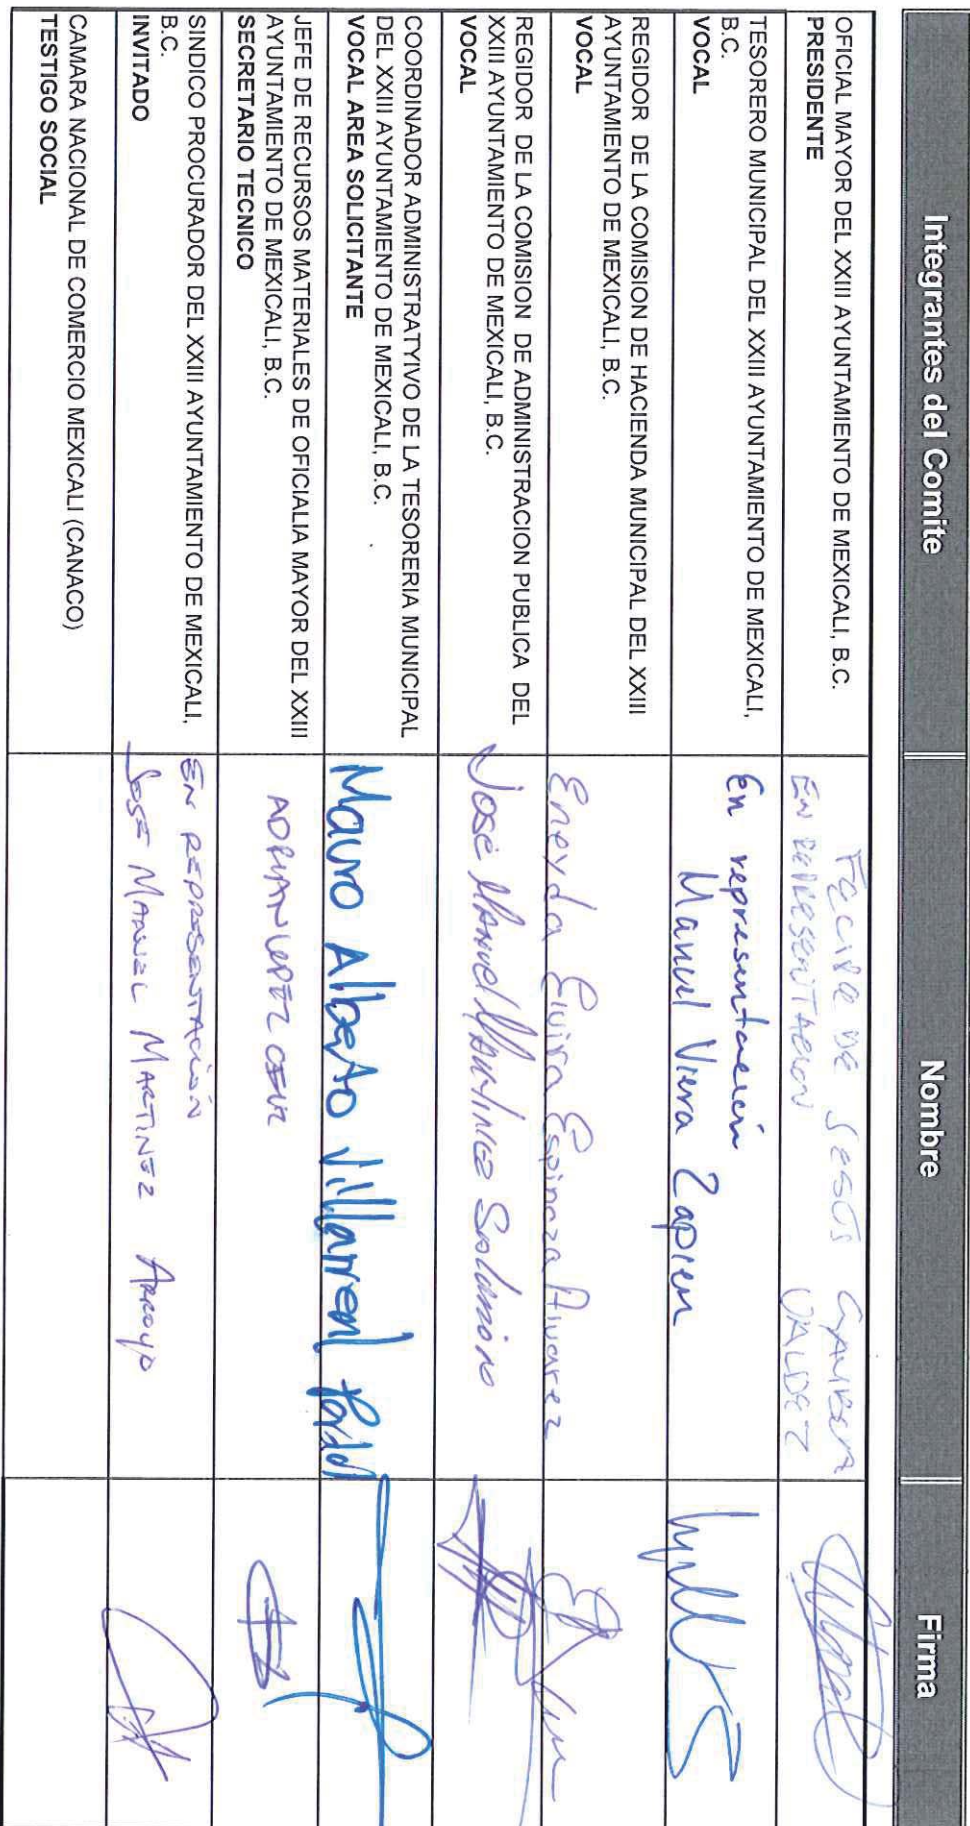 Integrantes del Comite Nombre Firma
OFICIAL MAYOR DEL XXIII AYUNTAMIENTO DE MEXICALI, B.C.
PRESIDENTE
DE JESUS
VALDEZ
EN REPRESENTACION
TESORERO MUNICIPAL DEL XXIII AYUNTAMIENTO DE MEXICALI,
B.C.
VOCAL
En representación
Manuel Viera Zapien
REGIDOR DE LA COMISION DE HACIENDA MUNICIPAL DEL XXIII
AYUNTAMIENTO DE MEXICALI, B.C.
VOCAL
Eneyda Elvira Espinoza Alvarez
REGIDOR DE LA COMISION DE ADMINISTRACION PUBLICA DEL
XXIII AYUNTAMIENTO DE MEXICALI, B.C.
VOCAL
José Manuel Martínez Salomón
COORDINADOR ADMINISTRATYIVO DE LA TESORERIA MUNICIPAL
DEL XXIII AYUNTAMIENTO DE MEXICALI, B.C.
VOCAL AREA SOLICITANTE
Mauro Alberto Villarreal
JEFE DE RECURSOS MATERIALES DE OFICIALIA MAYOR DEL XXIII
AYUNTAMIENTO DE MEXICALI, B.C.
SECRETARIO TECNICO
ADRIAN LOPEZ
SINDICO PROCURADOR DEL XXIII AYUNTAMIENTO DE MEXICALI,
B.C.
INVITADO
EN REPRESENTACIÓN
JOSE MANUEL MARTINEZ ARROYO
CAMARA NACIONAL DE COMERCIO MEXICALI (CANACO)
TESTIGO SOCIAL